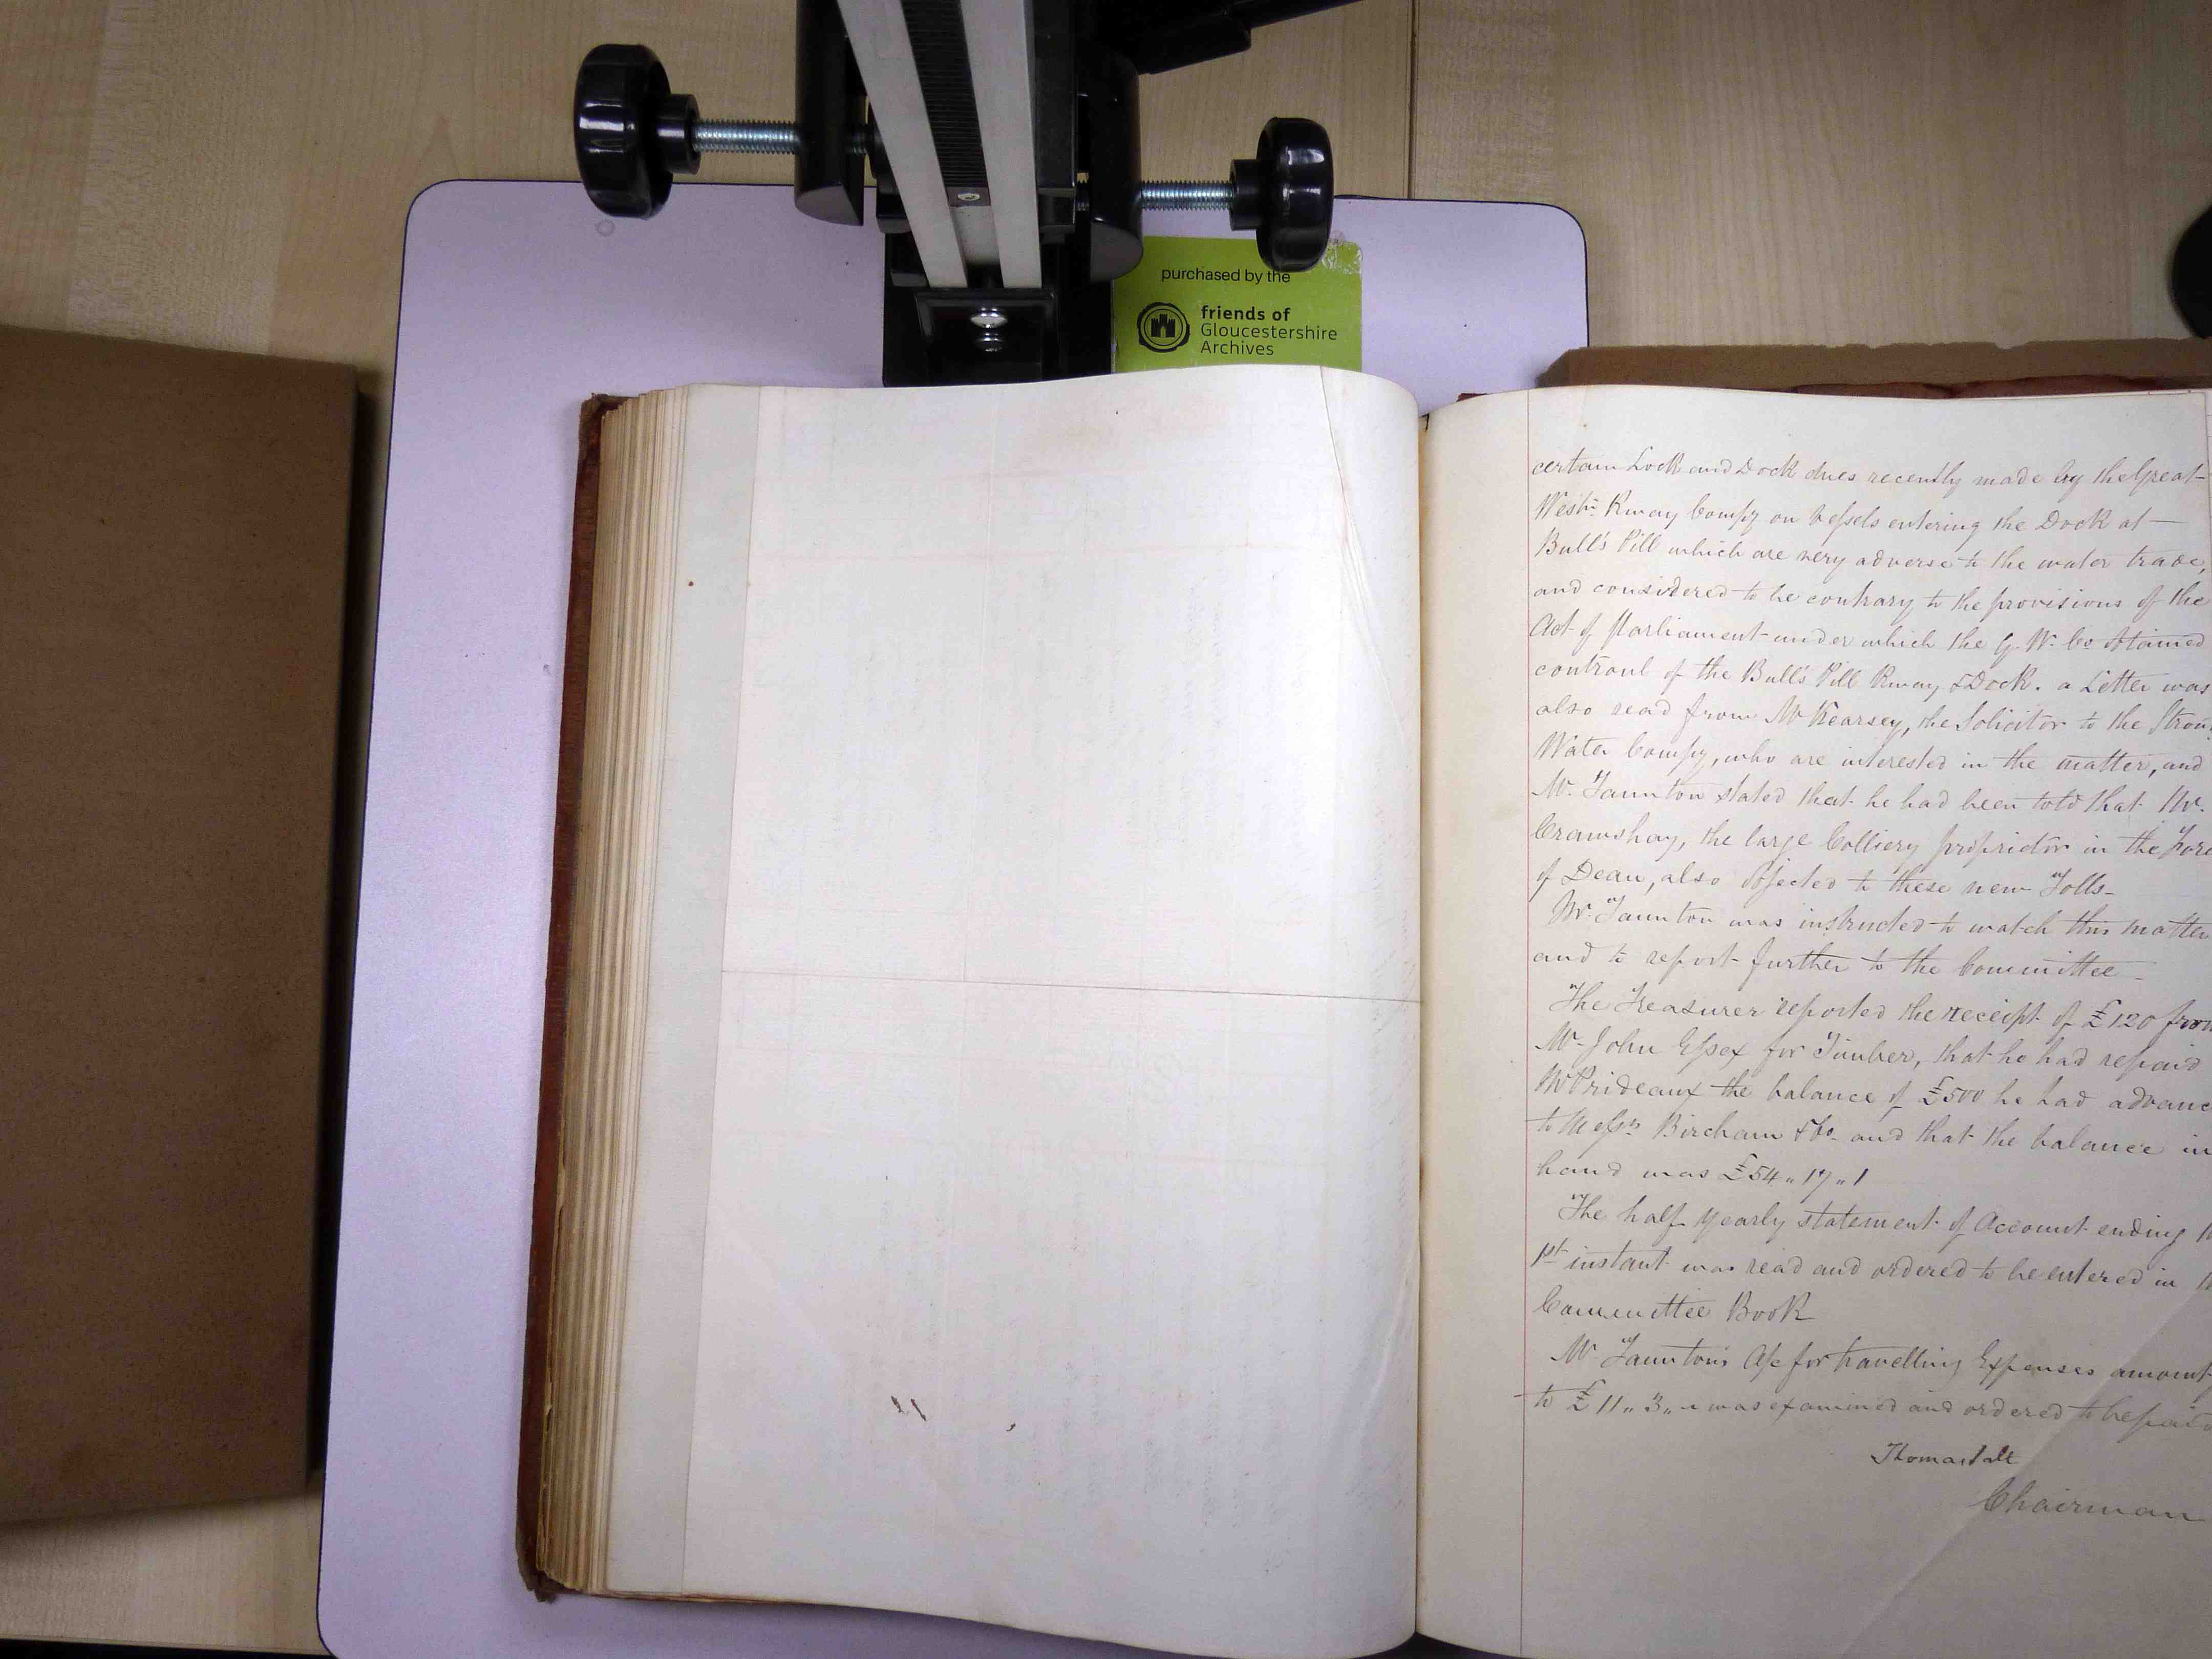 purchased by the
friends of
Gloucestershire
Archives
certain Lock and Dock dues recently made by the Great
Westn. Rway Compy on Vessels entering the Dock at
Bull's Pill which are very adverse to the water trade,
and considered to be contrary to the provisions of the
Act of Parliament under which the G. W. Co obtained
controul of the Bull's Pill Rway & Dock. a Letter was
also read from Mr Kearsey, the Solicitor to the Stroud
Water Compy, who are interested in the matter, and
Mr. Taunton stated that he had been told that Mr.
Crawshay, the large Colliery proprietor in the Fore
of Dean, also objected to these new Tolls-
Mr. Taunton was instructed to watch this matter
and to report further to the Committee-
The Treasurer reported the receipt of £120 from
Mr John Essex for Timber, that he had repaid
Mr Prideaux the balance of £500 he had advanc
to Messrs Bircham & Co. and that the balance in
hand was £54 " 17 " 1
The half yearly statement of Account ending
1st instant was read and ordered to be entered in
Committee Book
Mr Taunton's A/c for travelling Expenses amount
to £11 " 3 " was examined and ordered to be paid
Thomas
Chairman